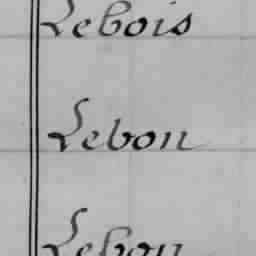 Lebois
Lebon
Lebon